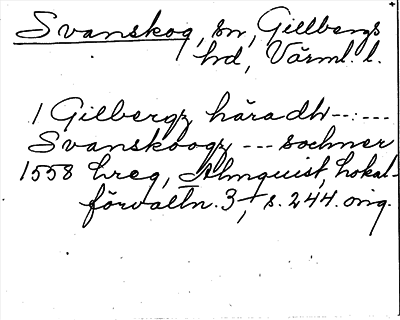 Svanskog, sn, Gillbergs
hd, Värml. l.
I Gilbergz häradh --:---
Svanskoogz --- sochner
1558 Lreg, Almquist, Lokal-
förvaltn. 3, s. 244. orig.